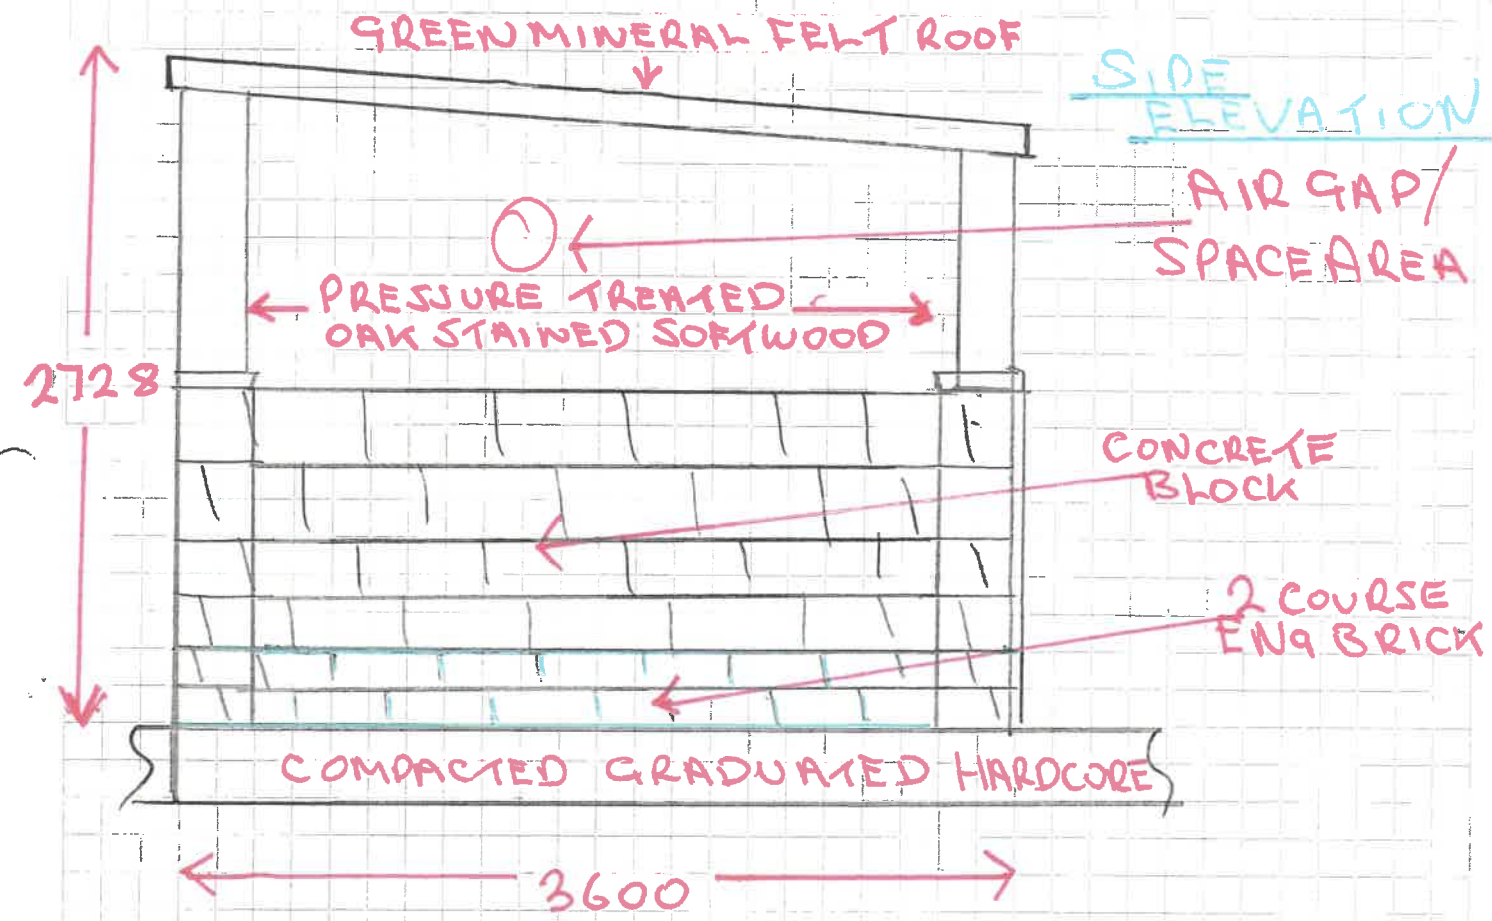 GREEN MINERAL FELT ROOF
SIDE
ELEVATION
AIR GAP/
SPACE AREA
PRESSURE TREATED
OAK STAINED SOFTWOOD
2728
CONCRETE
BLOCK
2 COURSE
ENG BRICK
COMPACTED GRADUATED HARDCORE
3600